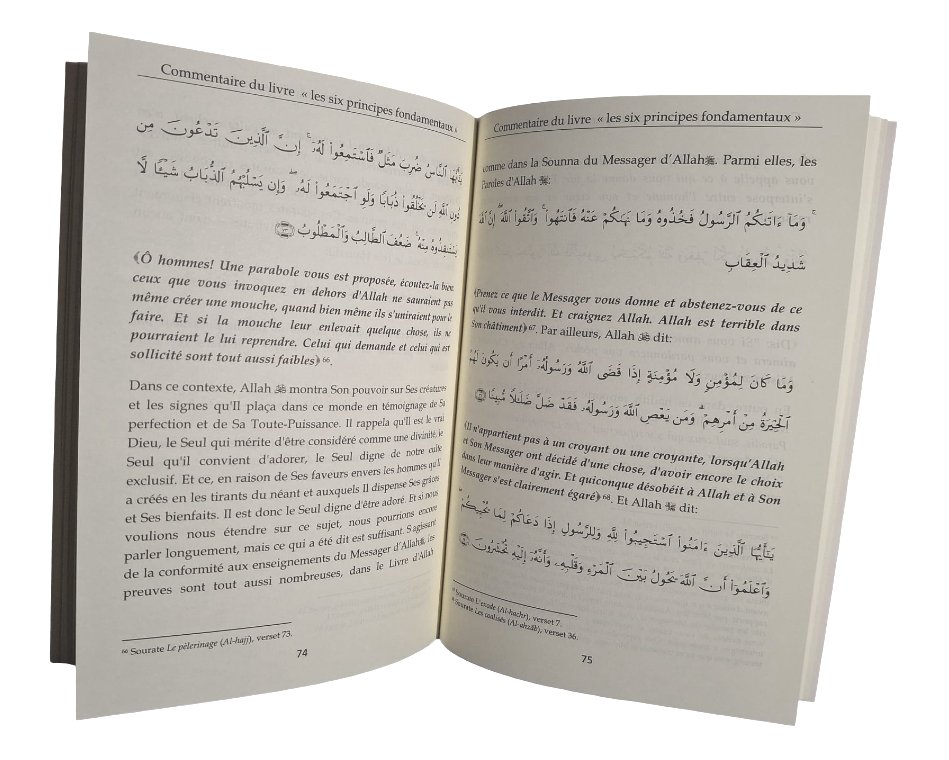 Commentaire du livre « les six principes fondamentaux »
يَٰٓأَيُّهَا ٱلنَّاسُ ضُرِبَ مَثَلٌ فَٱسْتَمِعُوا۟ لَهُۥٓ ۚ إِنَّ ٱلَّذِينَ تَدْعُونَ مِن
دُونِ ٱللَّهِ لَن يَخْلُقُوا۟ ذُبَابًا وَلَوِ ٱجْتَمَعُوا۟ لَهُۥ ۖ وَإِن يَسْلُبْهُمُ ٱلذُّبَابُ شَيْـًٔا لَّا
يَسْتَنقِذُوهُ مِنْهُ ۚ ضَعُفَ ٱلطَّالِبُ وَٱلْمَطْلُوبُ ﴿٧٣﴾
﴾Ô hommes! Une parabole vous est proposée, écoutez-la bien:
ceux que vous invoquez en dehors d'Allah ne sauraient pas
même créer une mouche, quand bien même ils s'uniraient pour le
faire. Et si la mouche leur enlevait quelque chose, ils ne
pourraient le lui reprendre. Celui qui demande et celui qui est
sollicité sont tout aussi faibles﴿ 66.
Dans ce contexte, Allah ﷻ montra Son pouvoir sur Ses créatures
et les signes qu'Il plaça dans ce monde en témoignage de Sa
perfection et de Sa Toute-Puissance. Il rappela qu'Il est le vrai
Dieu, le Seul qui mérite d'être considéré comme une divinité, le
Seul qu'il convient d'adorer, le Seul digne de notre culte
exclusif. Et ce, en raison de Ses faveurs envers les hommes qu'Il
a créés en les tirants du néant et auxquels Il dispense Ses grâces
et Ses bienfaits. Il est donc le Seul digne d'être adoré. Et si nous
voulions nous étendre sur ce sujet, nous pourrions encore
parler longuement, mais ce qui a été dit est suffisant. S'agissant
de la conformité aux enseignements du Messager d'Allah ﷺ, les
preuves sont tout aussi nombreuses, dans le Livre d'Allah
66 Sourate Le pèlerinage (Al-hajj), verset 73.
74
Commentaire du livre « les six principes fondamentaux »
comme dans la Sounna du Messager d'Allah ﷺ. Parmi elles, les
Paroles d'Allah ﷻ:
وَمَآ ءَاتَىٰكُمُ ٱلرَّسُولُ فَخُذُوهُ وَمَا نَهَىٰكُمْ عَنْهُ فَٱنتَهُوا۟ ۚ وَٱتَّقُوا۟ ٱللَّهَ ۖ إِنَّ ٱللَّهَ
شَدِيدُ ٱلْعِقَابِ
﴾Prenez ce que le Messager vous donne et abstenez-vous de ce
qu'il vous interdit. Et craignez Allah. Allah est terrible dans
Son châtiment﴿ 67. Par ailleurs, Allah ﷻ dit:
وَمَا كَانَ لِمُؤْمِنٍ وَلَا مُؤْمِنَةٍ إِذَا قَضَى ٱللَّهُ وَرَسُولُهُۥٓ أَمْرًا أَن يَكُونَ لَهُمُ
ٱلْخِيَرَةُ مِنْ أَمْرِهِمْ ۗ وَمَن يَعْصِ ٱللَّهَ وَرَسُولَهُۥ فَقَدْ ضَلَّ ضَلَٰلًا مُّبِينًا ﴿٣٦﴾
﴾Il n'appartient pas à un croyant ou une croyante, lorsqu'Allah
et Son Messager ont décidé d'une chose, d'avoir encore le choix
dans leur manière d'agir. Et quiconque désobéit à Allah et à Son
Messager s'est clairement égaré﴿ 68. Et Allah ﷻ dit:
يَٰٓأَيُّهَا ٱلَّذِينَ ءَامَنُوا۟ ٱسْتَجِيبُوا۟ لِلَّهِ وَلِلرَّسُولِ إِذَا دَعَاكُمْ لِمَا يُحْيِيكُمْ ۖ
وَٱعْلَمُوٓا۟ أَنَّ ٱللَّهَ يَحُولُ بَيْنَ ٱلْمَرْءِ وَقَلْبِهِۦ وَأَنَّهُۥٓ إِلَيْهِ تُحْشَرُونَ
Sourate L'exode (Al-hachr), verset 7.
Sourate Les coalisés (Al-ahzâb), verset 36.
75